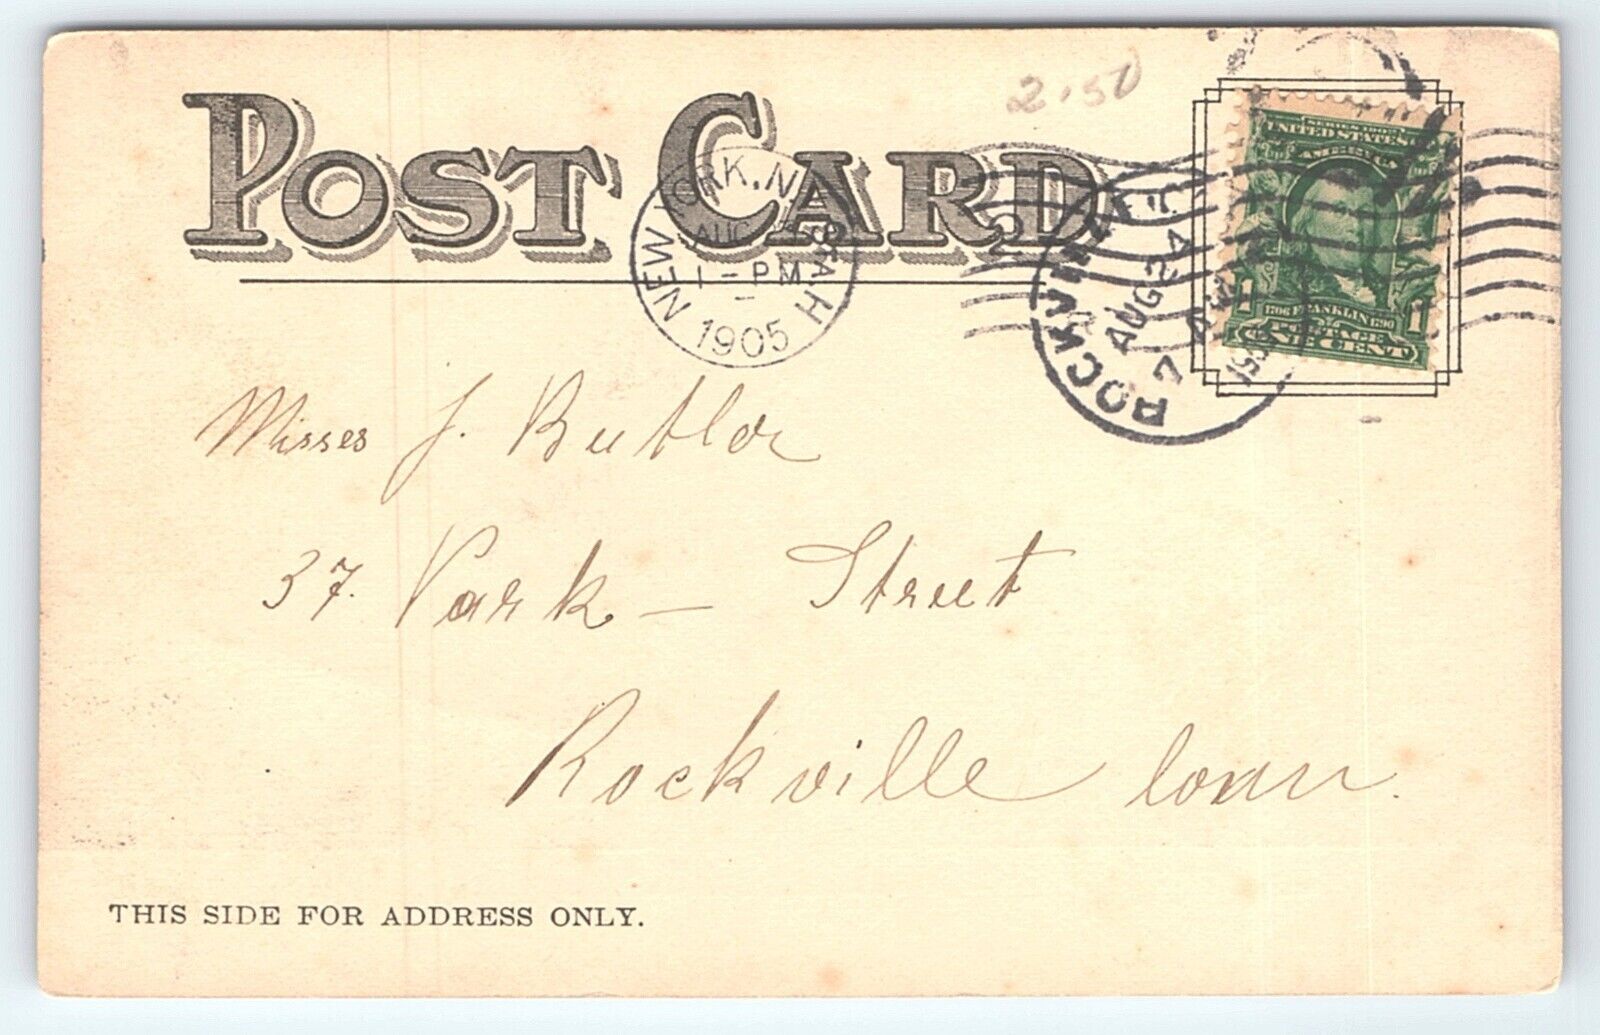 2.50
POST CARD
NEW YORK, N.Y. STA H
AUG
1-PM
1905
ROCKVILLE
AUG 24
7 AM
SERIES 1902
UNITED STATES OF
AMERICA
1 1706 FRANKLIN 1790 1
POSTAGE
ONE CENT
Misses J. Butler
37. Park - Street
Rockville Conn.
THIS SIDE FOR ADDRESS ONLY.